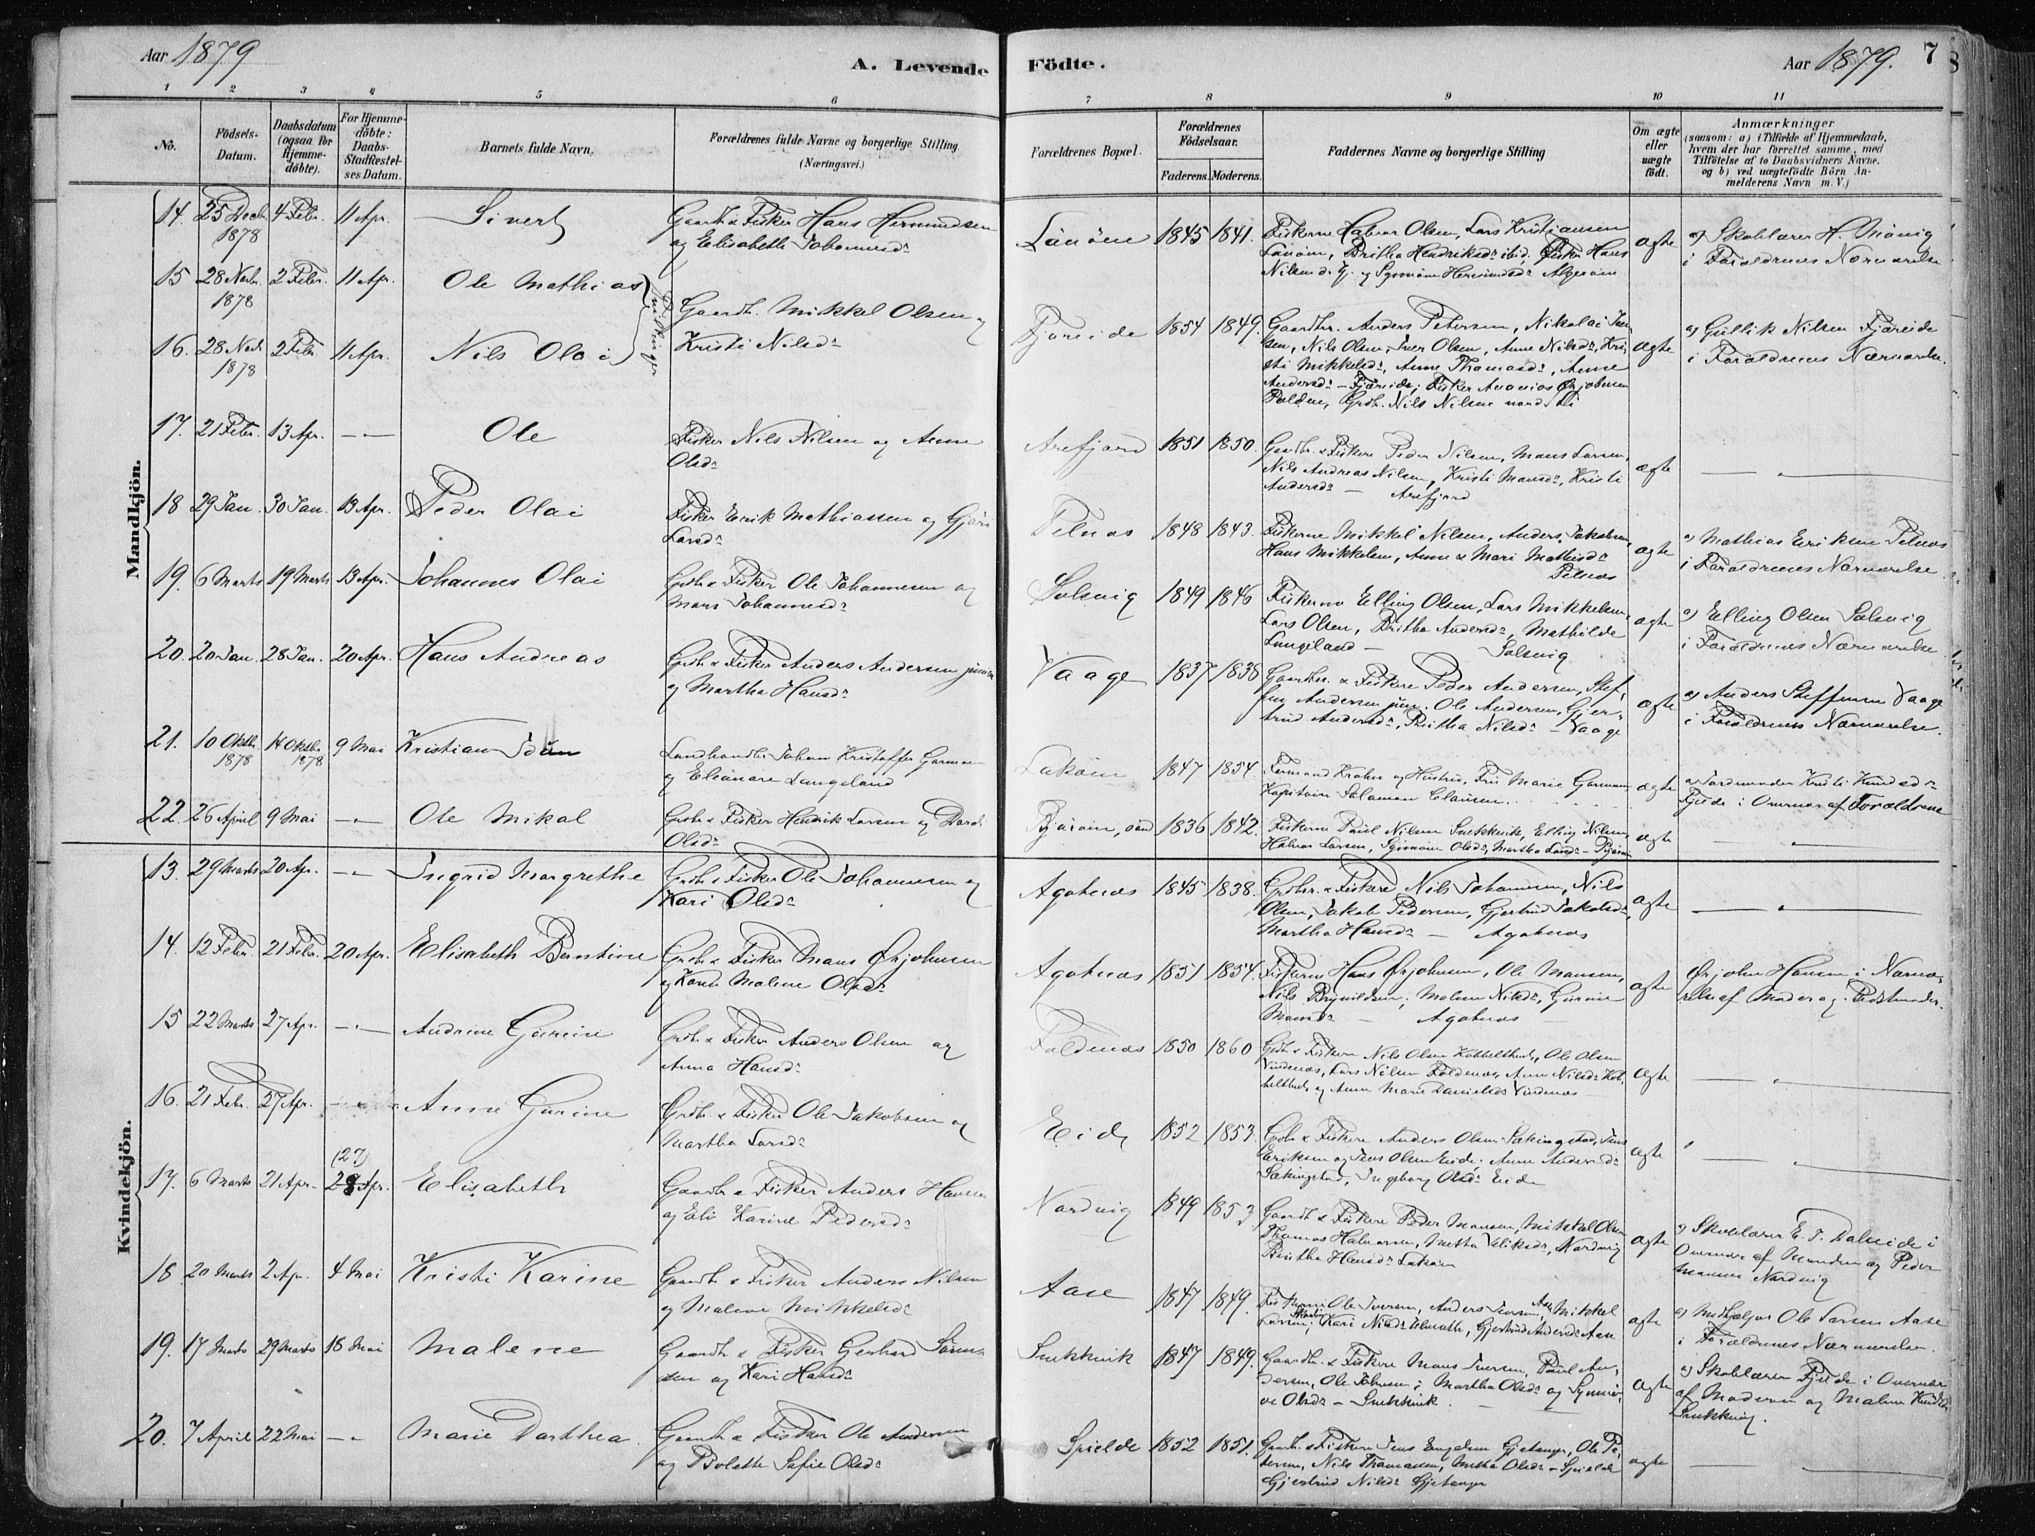 Aar 1879
A. Levende Födte.
Aar 1879. 7
1 2 3 4 5 6 7 8 9 10 11
No.
Födsels-Datum.
Daabsdatum (ogsaa for Hjemme-döbte).
For Hjemme-döbte: Daabs-Stadfæstel-ses Datum.
Barnets fulde Navn.
Forældrenes fulde Navne og borgerlige Stilling (Næringsvei.)
Forældrenes Bopæl.
Forældrenes Födselsaar.
Faderens. Moderens.
Faddernes Navne og borgerlige Stilling
Om ægte eller uægte födt.
Anmærkninger
(saasom: a) i Tilfælde af Hjemmedaab,
hvem der har forrettet samme, med
Tilföielse af to Daabsvidners Navne.
og b) ved uægtefödte Börn An-
melderens Navn m. V.)
Mandkjön.
14. 25 Decbr. 1878 4 Febr. 11 Apr. Sivert
Gaardb. & Fisker Hans Hermundsen
og Elisabeth Johannesdr
1845 1841.
Fiskerne Halvor Olsen, Lars Kristiansen
Britha Hendriksdr ibid, Fisker Hans
ægte
a) Skolelærer H.
i Forældrenes Nærværelse
15 28 Novbr. 1878 2 Febr. 11 Apr. Ole Mathias
Tvillinger
Gaardb. Mikkel Olsen og
Kristi Nilsdr
Fjæreide 1854 1849.
Gaardbr. Anders Petersen, Nikolai Jen-
sen, Nils Olsen, Iver Olsen, Anne Nilsdr, Kri-
sti Mikkelsdr, Anne Thomasdr, Anne
Andersdr - Fjæreide; Fisker Ananias Ørjohnsen
Grdb. Nils Nilsen
ægte
a) Gullik Nilsen Fjæreide
i Forældrenes Nærværelse.
16. 28 Novb. 1878 2 Febr. 11 Apr. Nils Olai
17. 21 Febr. 13 Apr. — " — Ole
Fisker Nils Nilsen og Anne
Olsdr
Arefjord 1851 1850.
Gaardbr. & Fiskere Peder Nilsen, Mons Larsen,
Nils Andreas Nilsen, Kristi Monsdr, Kristi
Andersdr — Arefjord
ægte
18 29 Jan. 30 Jan. 13 Apr. Peder Olai
Fisker Erik Mathiassen og
Larsdr
Telnæs 1848 1843.
Fiskerne Mikkel Nilsen, Anders Jakobsen,
Hans Mikkelsen, Anne & Mari Mathisdr
Telnæs
ægte
a) Mathias Eriksen Telnæs
i Forældrenes Nærværelse.
19. 6 Marts 19 Marts 13 Apr. Johannes Olai
Grdb. & Fisker Ole Johannesen og
Mari Johannesdr
Solsvig 1849 1846
Fiskerne Elling Olsen, Lars Mikkelsen,
Lars Olsen, Britha Andersdr, Mathilde
Langeland — Solsvig
ægte
a) Elling Olsen Solsvig
i Forældrenes Nærværelse
20. 20 Jan. 28 Jan. 20 Apr. Hans Andreas
Grdb. & Fisker Anders Andersen junior
og Martha Hansdr
Vaage 1837 1838
Gaardbr. & Fiskere Peder Andersen, Stef-
fen Andersen jun. Ole Andersen, Gjer-
trud Andersdr, Britha Nilsdr - Vaage
ægte
a) Anders Steffensen Vaage
i Forældrenes Nærværelse.
21. 10 Oktbr. 1878 14 Oktbr. 1878 9 Mai Kristian
Landhandler Johan Kristoffer Garman
og Eleonare Langeland
1847 1854.
Fermand Krohn og Hustru, Fru Marie Garman
Kapitain Salamon Clausen
ægte
a) Jordmoder Kristi Knudsdr
Fjelde i Overvær af Forældrene
22. 26 April 9 Mai — " — Ole Mikal
Grdb & Fisker Hendrik Larsen og
Olsdr
1836 1842.
Fiskerne Paul Nilsen Snekkevik, Elling Nilsen
Halvor Larsen, Martha Larsdr
ægte
Kvindekjön.
13. 29 Marts 20 Apr. — " — Ingrid Margrethe
Grdb. & Fisker Ole Johannesen og
Kari Olsdr
Agotnæs 1845 1838.
Grdbr. & Fiskere Nils Johannesen, Nils
Olsen, Jakob Pedersen, Gjertrud Jakobsdr,
Martha Hansdr — Agotnæs
ægte
14. 12 Febr. 21 Febr. 20 Apr. Elisabeth Berntine
Grdb & Fisker Mons Ørjohnsen
og Karen Malene Olsdr
Agotnæs 1851 1854.
Fiskerne Hans Ørjohnsen, Ole Monsen,
Nils Brynildsen; Malene Nilsdr, Gurine
Monsdr — Agotnæs
ægte
Ørjohn Hansen i Nærvæ-
relse af Moder og Bedstemoder.
15 22 Marts 27 Apr. — " — Andrine Gurine
Grdb. & Fisker Anders Olsen og
Anna Hansdr
Foldnæs 1850 1860
Grdb. & Fiskere Nils Olsen Kobbeltvedt, Ole Olsen
Vindenæs, Lars Nilsen Foldnæs, Ane Nilsdr Kob-
beltvedt og Anne Marie Danielsdr Vindenæs
ægte
16. 21 Febr. 27 Apr. Anne Gurine
Grdb. & Fisker Ole Jakobsen og
Martha Larsdr
Eide 1852 1853.
Grdb. & Fiskere Anders Olsen Sækingstad, Jens
Eriksen og Jens Olsen Eide, Anne Andersdr
Sækingstad, Ingeborg Olsdr Eide
ægte
17. 6 Marts 21 Apr. (27) 28 Apr. Elisabeth
Gaardb. & Fisker Anders Hansen
og Eli Karine Pedersdr
Nordvig 1849 1853
Gaardb. & Fiskere Peder Monsen, Mikkel Olsen
Thomas Halvorsen, Metta Nordvig
Britha Hansdr
ægte
a) Skolelærer E. T. Dalseide i
Overvær af Manden og Peder
Monsen Nordvig
18. 20 Marts 2 Apr. 4 Mai Kristi Karine
Gaardb & Fisker Anders Nilsen
og Malene Mikkelsdr
Aase 1847 1849.
Fiskerne Ole Iversen, Anders Iversen Aase, Mikkel
Larsen; Kari Nilsdr Gjertrud Andersdr Aase
ægte
a) Medhjelper Ole Larsen Aase
i Forældrenes Nærværelse.
19. 17 Marts 29 Marts 18 Mai Malene
Gaardb & Fisker Gerhard Sören-
sen og Kari Hansdr
Snekkevik 1847 1849.
Gaardb. & Fiskere Mons Iversen, Paul An-
dersen, Ole Johnsen; Martha Olsdr og Synnö-
ve Olsdr - Snekkevik.
ægte
a) Skolelærer Fjelde i Overvær
af Moderen og Malene Knudsdr
Snekkevig.
20. 7 April 22 Mai — " — Marie Dorthea.
Gaardb & Fisker Ole Andersen
og Bolette Sofie Olsdr
Spielde 1852 1851.
Gaardb. & Fiskere Jens Engelsen Gjetanger, Ole Pe-
dersen, Nils Thomassen, Metha Olsdr - Spielde
Gjertrud Nilsdr Gjetanger
ægte